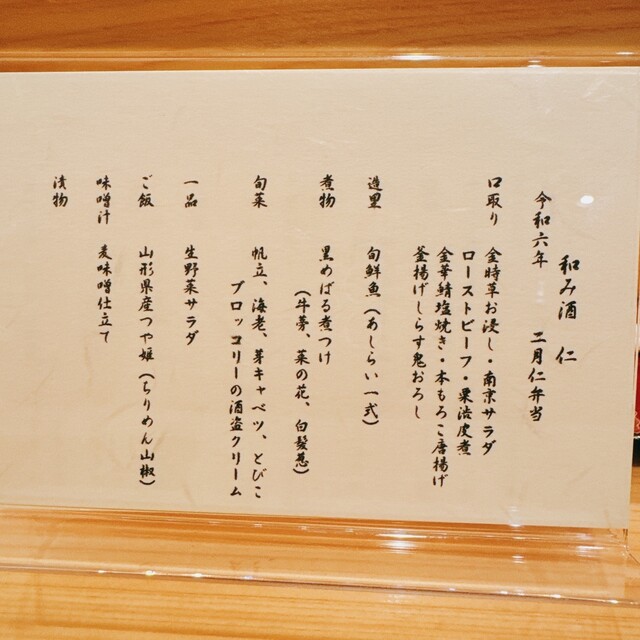 和み酒 仁
令和六年 二月仁弁当
口取り 金時草お浸し・南京サラダ
ローストビーフ・栗渋皮煮
金華鯖塩焼き・本もろこ唐揚げ
釜揚げしらす鬼おろし
造里 旬鮮魚(あしらい一式)
煮物 黒めばる煮つけ
(牛蒡、菜の花、白髪葱)
旬菜 帆立、海老、芽キャベツ、とびこ
ブロッコリーの酒盗クリーム
一品 生野菜サラダ
ご飯 山形県産つや姫(ちりめん山椒)
味噌汁 麦味噌仕立て
漬物